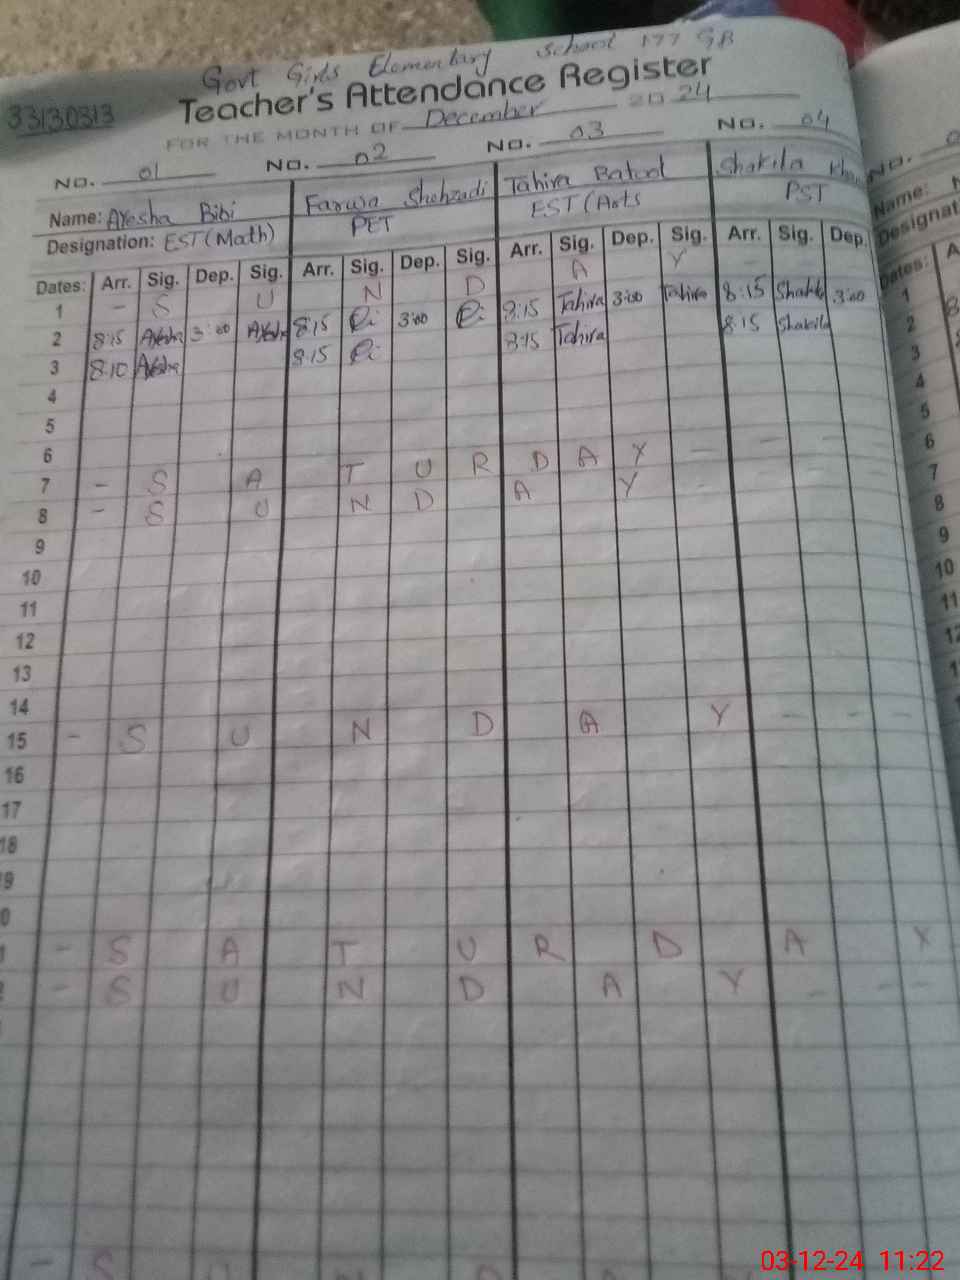 Govt Girls Elementary School 177 GB
33130313
Teacher's Attendance Register
FOR THE MONTH OF December 20 24
No. 01 No. 02 No. 03 No. 04
Name: Ayesha Bibi Farwa Shehzadi Tahira Batool Shakila
Designation: EST (Math) PET EST (Arts PST
Dates: Arr. Sig. Dep. Sig. Arr. Sig. Dep. Sig. Arr. Sig. Dep. Sig. Arr. Sig. Dep.
1 - S U N D A Y - - -
2 8:15 Ayesha 3:00 Ayesha 8:15 3:00 8:15 Tahira 3:00 Tahira 8:15 Shakila 3:00
3 8:10 Ayesha 8:15 8:15 Tahira 8:15 Shakila
4
5
6
7 - S A T U R D A Y - - -
8 - S U N D A Y -
9
10
11
12
13
14
15 - S U N D A Y - - -
16
17
18
9
0
- S A T U R D A Y
- S U N D A Y - - -
- S
No.
Name:
Designat
Dates:
1
2
3
4
5
6
7
8
9
10
11
12
03-12-24 11:22